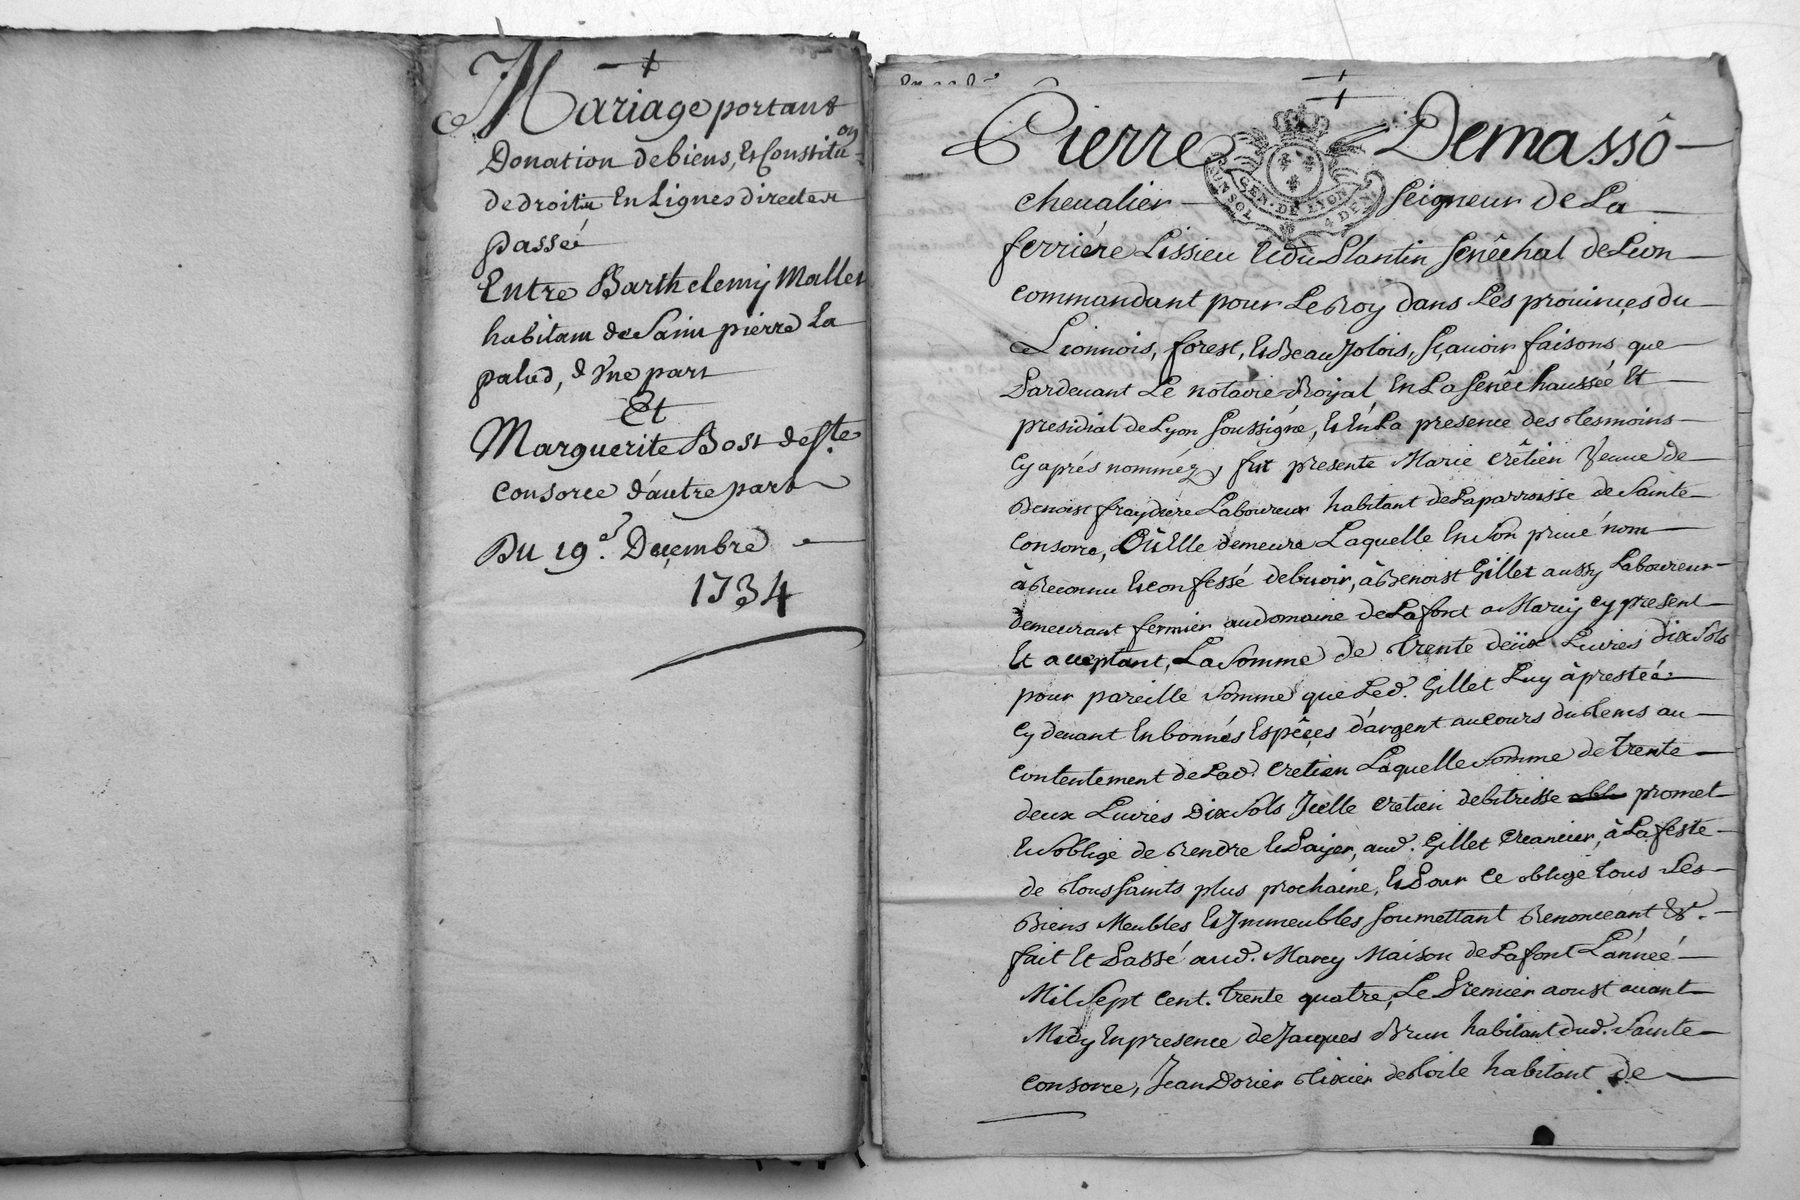 Mariage portant
Donation de biens, Et Constitu^on
de droits En Lignes directes
passé
Entre Barthelemy Mallet
habitant de Saint pierre La
palud, d'Vne part
Et
Marguerite Bost de Ste
Consorce d'autre part
Du 19e. Decembre
1734
Pierre Demasso
chevalier Seigneur de La
ferriére Lissieu Et du Plantin Senêchal de Lion
commandant pour Le Roy dans Les provinces du
Lionnois, forest, Et Beaujolois, sçavoir faisons que
Pardevant Le notaire Royal En La Senêchaussée Et
presidial de Lyon soussigné, Et En La presence des tesmoins
Cy aprés nomméz, fut presente Marie Crêtien Veuve de
Benoist fraydiere Laboureur habitant de La parroisse de Sainte
Consorce, Où Elle demeure Laquelle En Son privé nom
à Reconnu Et confessé debvoir, à Benoist Gillet aussy Laboureur
demeurant fermier au domaine de La font a Marcy cy present
Et acceptant, La Somme de trente deüx Livres dix sols
pour pareille somme que Led. Gillet Luy à prestéé
Cy devant En bonnés Espêces d'argent au cours du tems au
contentement de Lad. Cretien Laquelle somme de trente
deux Livres Dix sols Icelle Cretien debitrisse promet
Et s'oblige de Rendre Et Paijer, aud. Gillet Creancier, à La feste
de toussaints plus prochaine, Et Pour Ce obligé tous Ses
Biens Meubles Et Immeubles soumettant Renonceant &c.
fait Et Passé aud. Marcy Maison de La font L'année
Mil Sept Cent. trente quatre, Le Premier aoust avant
Midy En presence de Jacques Brun habitant dud. Sainte
Consorce, Jean Dorier tixier de toile habitant de
GEN. DE LYON
UN SOL 4 DEN.